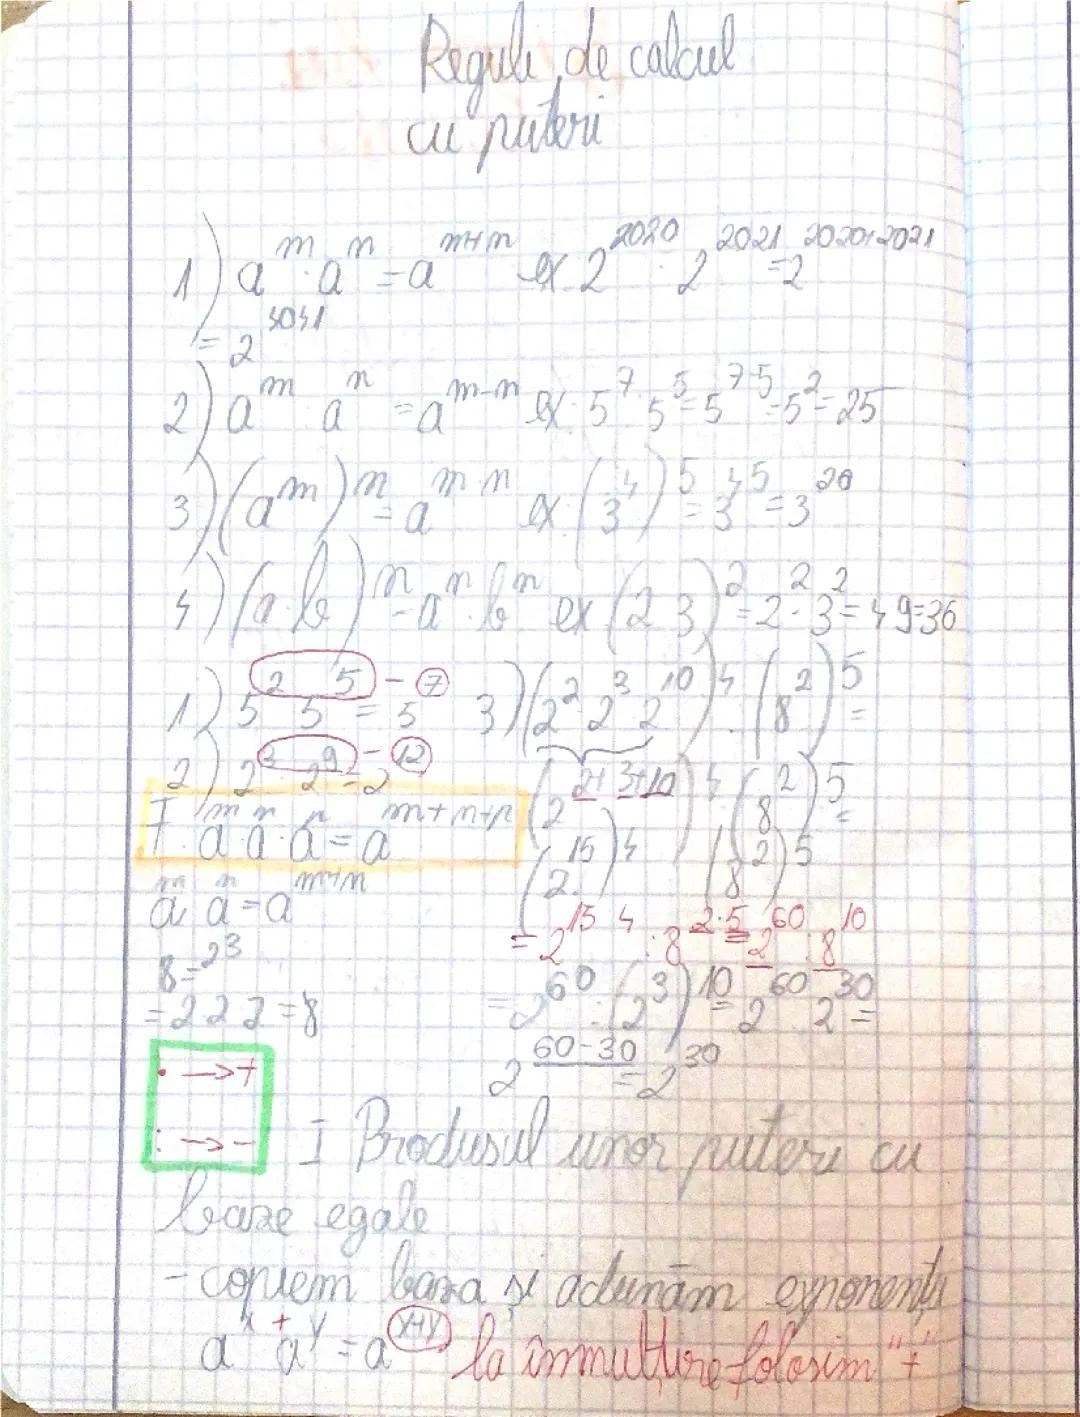 Reguli de calcul
cu puteri
1) a^m · a^n = a^(m+n) ex 2^2020 · 2^2021 = 2^(2020+2021)
= 2^4041
2) a^m : a^n = a^(m-n) ex: 5^7 : 5^5 = 5^(7-5) = 5^2 = 25
3) (a^m)^n = a^(m·n) ex: (3^4)^5 = 3^(4·5) = 3^20
4) (a·b)^n = a^n · b^n ex (2·3)^2 = 2^2 · 3^2 = 4·9=36
1) 5^2 · 5^5 = 5^7
2) 2^3 · 2^9 = 2^12
F: a^m · a^n · a^p = a^(m+n+p)
a^m · a^n = a^(m+n)
8 = 2^3
= 2·2·2 = 8
· → +
: → -
3) (2^2 · 2^3 · 2^10)^4 : (8^2)^5 =
(2^(2+3+10))^4 : (8^2)^5 =
(2^15)^4 : (8^2)^5
= 2^(15·4) : 8^(2·5) = 2^60 : 8^10
= 2^60 : (2^3)^10 = 2^60 : 2^30 =
2^(60-30) = 2^30
I Produsul unor puteri cu
baze egale
- copiem baza și adunăm exponenții
a^x + a^y = a^(x+y) la înmulțire folosim "+"